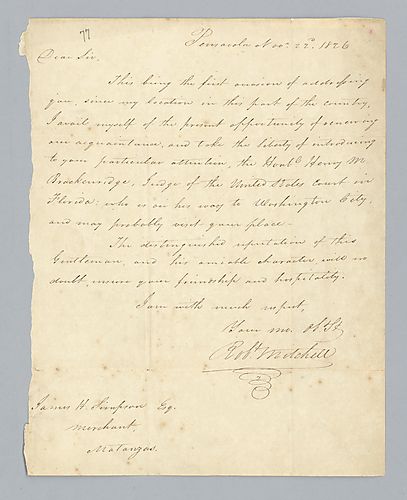 77
Pensacola Nov. 22d. 1826
Dear Sir,
This being the first occasion of addressing
you, since my location in this part of the country,
I avail myself of the present opportunity of renewing
our acquaintance, and take the liberty of introducing
to your particular attention, the Honble Henry M.
Brackenridge, Judge of the United States Court in
Florida: who is on his way to Washington City,
and may probably visit your place.
The distinguished reputation of this
Gentleman, and his amiable character, will no
doubt insure your friendship and hospitality.
I am with much respect,
Your mo. Obt. St
Robt. Mitchell
James H. Simpson Esq.
Merchant,
Matanzas.